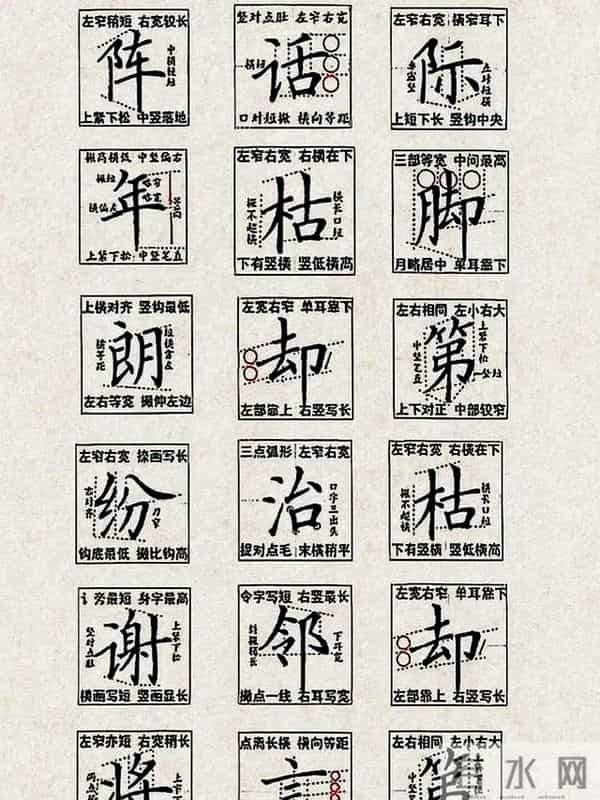 左窄稍短 右宽较长
阵
中横轻短
上紧下松 中竖落地
竖对点肚 左窄右宽
横短
话
口对短撇 横向等距
左窄右宽 横窄耳下
际
点对短横
上短下长 竖钩中央
撇高横低 中竖偏右
撇短
年
横偏左
上紧下松 中竖笔直
左窄右宽 右横在下
枯
撇不超横
横长口短
下有竖横 竖低横高
三部等宽 中间最高
脚
月略居中 单耳靠下
上横对齐 竖钩最低
朗
左右等宽 撇伸左边
左宽右窄 单耳靠下
却
左部靠上 右竖写长
左右相同 左小右大
第
上紧下松
中竖笔直
竖短
上下对正 中部较窄
左窄右宽 捺画写长
纷
右对齐
刀窄
钩底最低 撇比钩高
三点弧形 左窄右宽
治
口字三出头
捉对点毛 末横稍平
左窄右宽 右横在下
枯
撇不超横
横长口短
下有竖横 竖低横高
讠旁最短 身字最高
谢
竖对点肚
上紧下松
横画写短 竖画显长
令字写短 右竖最长
邻
下耳宽
撇点一线 右耳写宽
左宽右窄 单耳靠下
却
左部靠上 右竖写长
左窄亦短 右宽稍长
将
点离长横 横向等距
言
左右相同 左小右大
第
水网